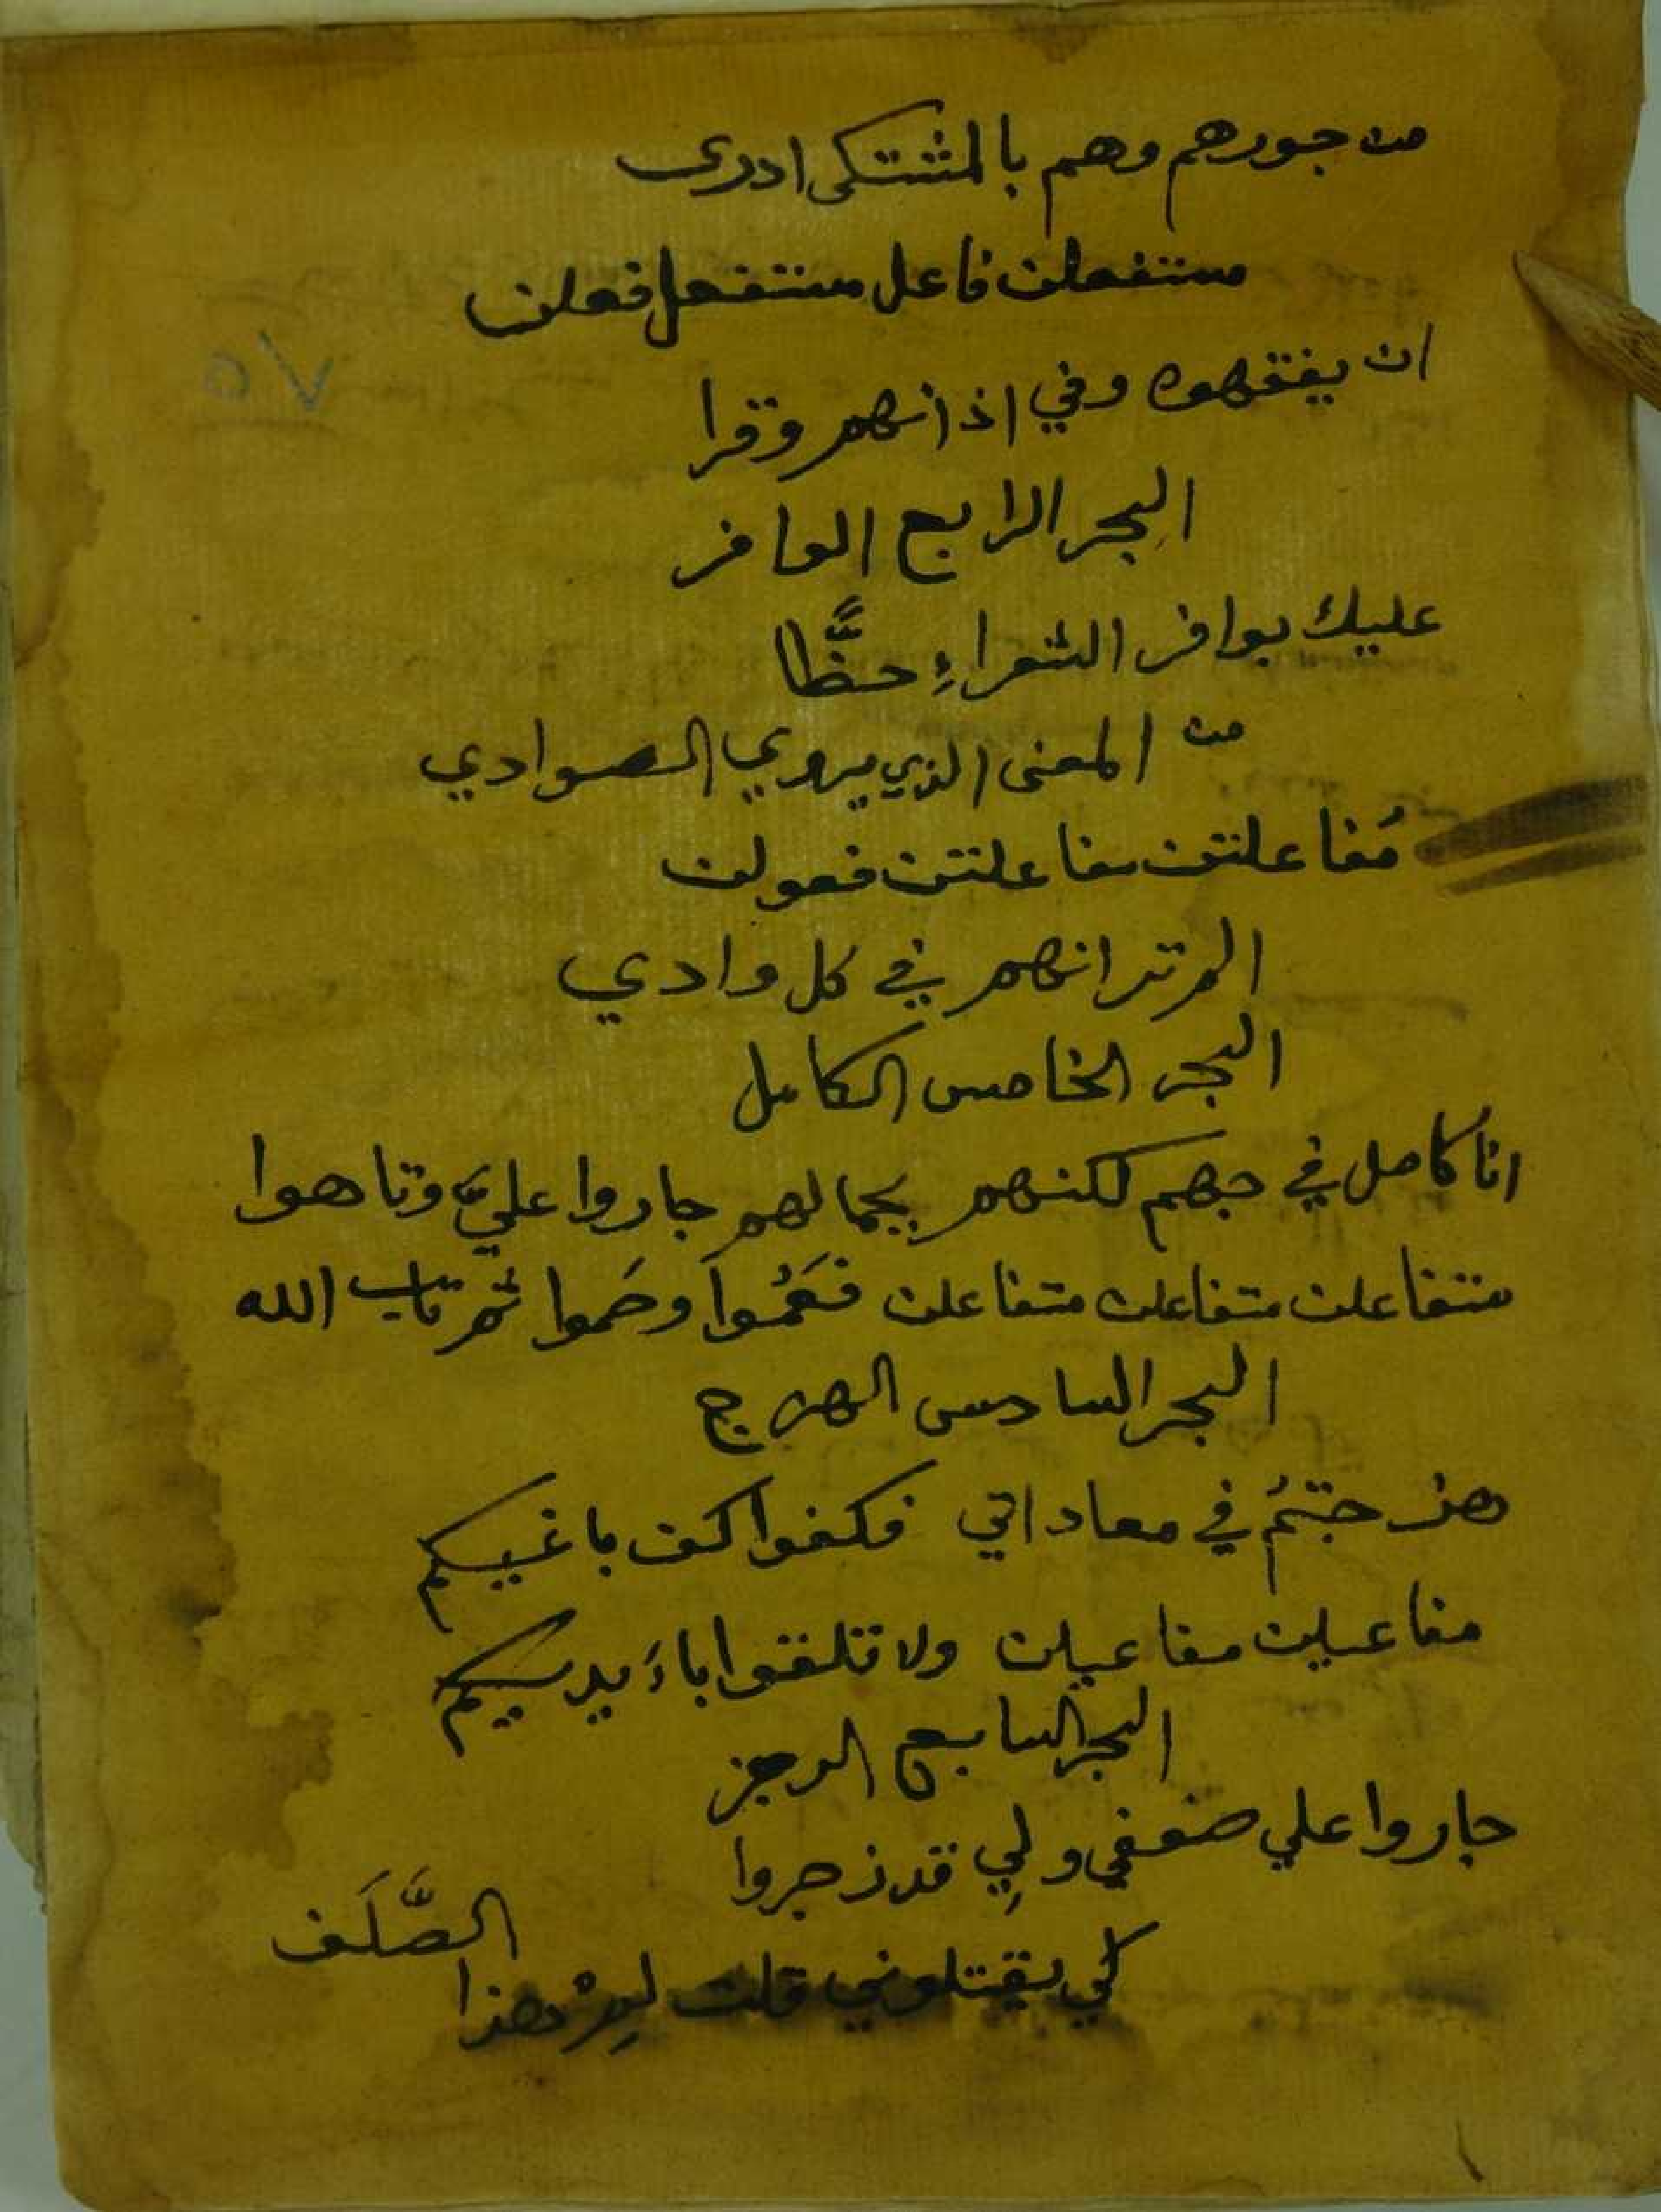 من جورهم وهم بالمشتكى ادرى
مستفعلن فاعل مستفعل فعلن
٧٥
ان يفقهوه وفي اذانهم وقرا
البحر الرابع الوافر
عليك بوافر الشعراءِ حظًّا
من المعنى الذي يروي الصوادي
مُفاعلتن مفاعلتن فعولن
الم تر انهم في كل وادي
البحر الخامس الكامل
انا كامل في حبهم لكنهم بجمالهم جاروا عليَّ وتاهوا
متفاعلن متفاعلن متفاعلن فعَمُوا وصَموا ثم تاب الله
البحر السادس الهزج
هزجتمُ في معاداتي فكفوا كف باغيكم
مفاعيلن مفاعيلن ولا تلقوا باءَيديكم
البحر السابع الرجز
جاروا علي ضعفي ولِي قد زجروا
كي يقتلوني قلت لِمْ هذا الصَّلَف